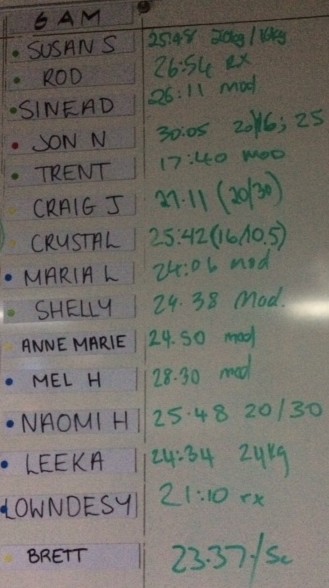 6 AM
SUSAN S 25:48 20kg/16kg
ROD 26:54 RX
SINEAD 26:11 mod
JON N 30:05 20/16; 25
TRENT 17:40 mod
CRAIG J 27.11 (20/30)
CRYSTAL 25:42 (16/10.5)
MARIA L 24:06 mod
SHELLY 24.38 Mod.
ANNE MARIE 24.50 mod
MEL H 28.30 mod
NAOMI H 25.48 20/30
LEEKA 24:34 24kg
LOWNDESY 21:10 rx
BRETT 23.37/Sc